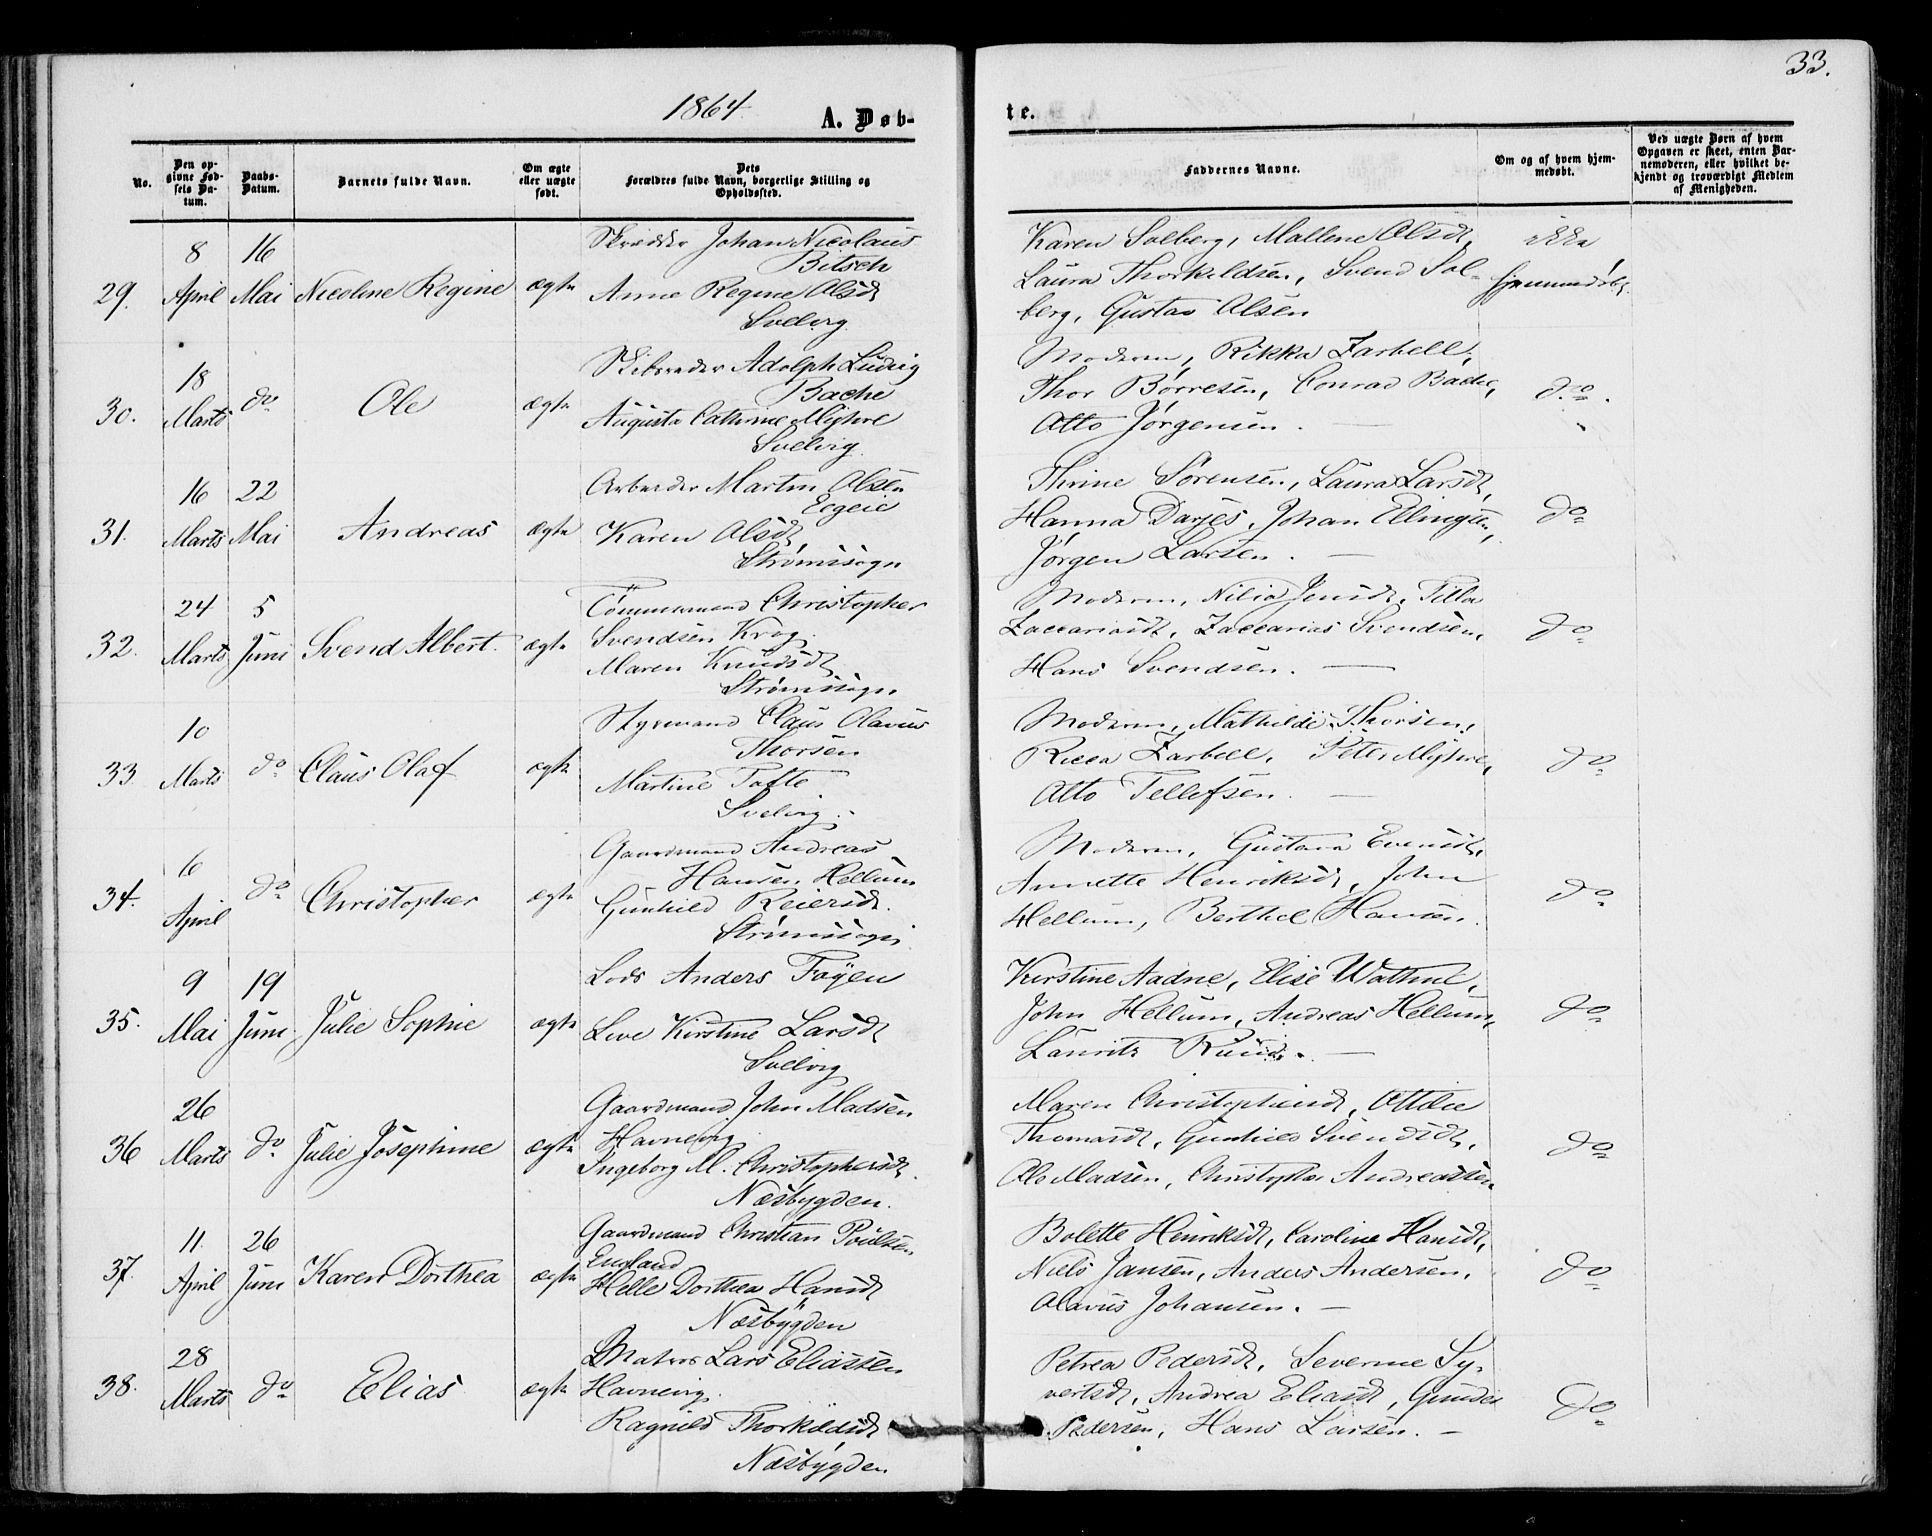 33.
1864. A. Døb- te.
No.
Den op-
givne Fød-
sels Da-
tum.
Daabs-
Datum.
Barnets fulde Navn.
Om ægte
eller uægte
født.
Dets
Forældres fulde Navn, borgerlige Stilling og
Opholdssted.
Faddernes Navne.
Om og af hvem hjem-
medøbt.
Ved uægte Børn af hvem
Opgaven er skeet, enten Bar-
nemoderen, eller hvilket be-
kjendt og troværdigt Medlem
af Menigheden.
29. 8 April 16 Mai Nicoline Regine ægte
Skrædder Johan Nicolaus
Bitsch
Anne Regine Olsdt
Svelvig
Karen Solberg, Mallene Olsdt,
Laura Thorkildsen, Svend Sol-
berg, Gustav Olsen
ikke
hjemmedøbt.
30. 18 Marts do Ole ægte
Skibsreder Adolph Ludvig
Bache
Augusta Cathrine Myhre
Svelvig
Moderen, Rikka Zarbell,
Thor Børresen, Conrad Bache,
Otto Jørgensen. —
do.
31. 16 Marts 22 Mai Andreas ægte
Arbeider Martin Olsen
Eegeie
Karen Olsdt,
Strømssogn
Thrine Sørensen, Laura Larsdt,
Hanna Darjes, Johan Ellingsen,
Jørgen Larsen. —
do
32. 24 Marts 5 Juni Svend Albert. ægte
Tømmermand Christopher
Svendsen Krog.
Maren Knudsdt
Strømssogn
Moderen, Nilia Jensdt, Tilla
Zaccariasdt, Zaccarias Svendsen,
Hans Svendsen. —
do
33. 10 Marts do Claus Olaf ægte
Styrmand Claus Olavus
Thorsen
Martine Tofte
Svelvig.
Moderen, Mathilde Thorsen,
Ricca Zarbell, Peter Myhre,
Otto Tellefsen. —
do
34. 6 April do Christopher ægte
Gaardmand Andreas
Hansen Hellum
Gunhild Reiersdt.
Strømssogn
Moderen, Gustava Evensdt,
Annette Henriksdt, John
Hellum, Berthel Hansen.
do
35. 9 Mai 19 Juni Julie Sophie ægte
Lods Anders Foyen
Live Kirstine Larsdt
Svelvig
Kirstine Aadne, Elise Wathne,
John Hellum, Andreas Hellum,
Lauritz Ruud. —
do
36 26 Marts do Julie Josephine ægte
Gaardmand John Madsen
Havnevig
Ingeborg M. Christophersdt.
Næsbygden.
Maren Christophersdt, Ottilie
Thomasdt, Gunhild Svendsdt,
Ole Madsen, Christopher Andreassen
do
37. 11 April 26 Juni Karen Dorthea ægte
Gaardmand Christian Poulsen
England
Helle Dorthea Hansdt
Næsbygden
Bolette Henriksdt, Caroline Hansdt,
Niels Jansen, Anders Andersen,
Olavus Johansen. —
do
38. 28 Marts do Elias ægte
Matros Lars Eliassen
Havnevig.
Ragnild Thorkildsdt
Næsbygden
Petrea Pedersdt, Severine Sy-
vertsdt, Andrea Eliasdt, Gunder
Pedersen, Hans Larsen. —
do